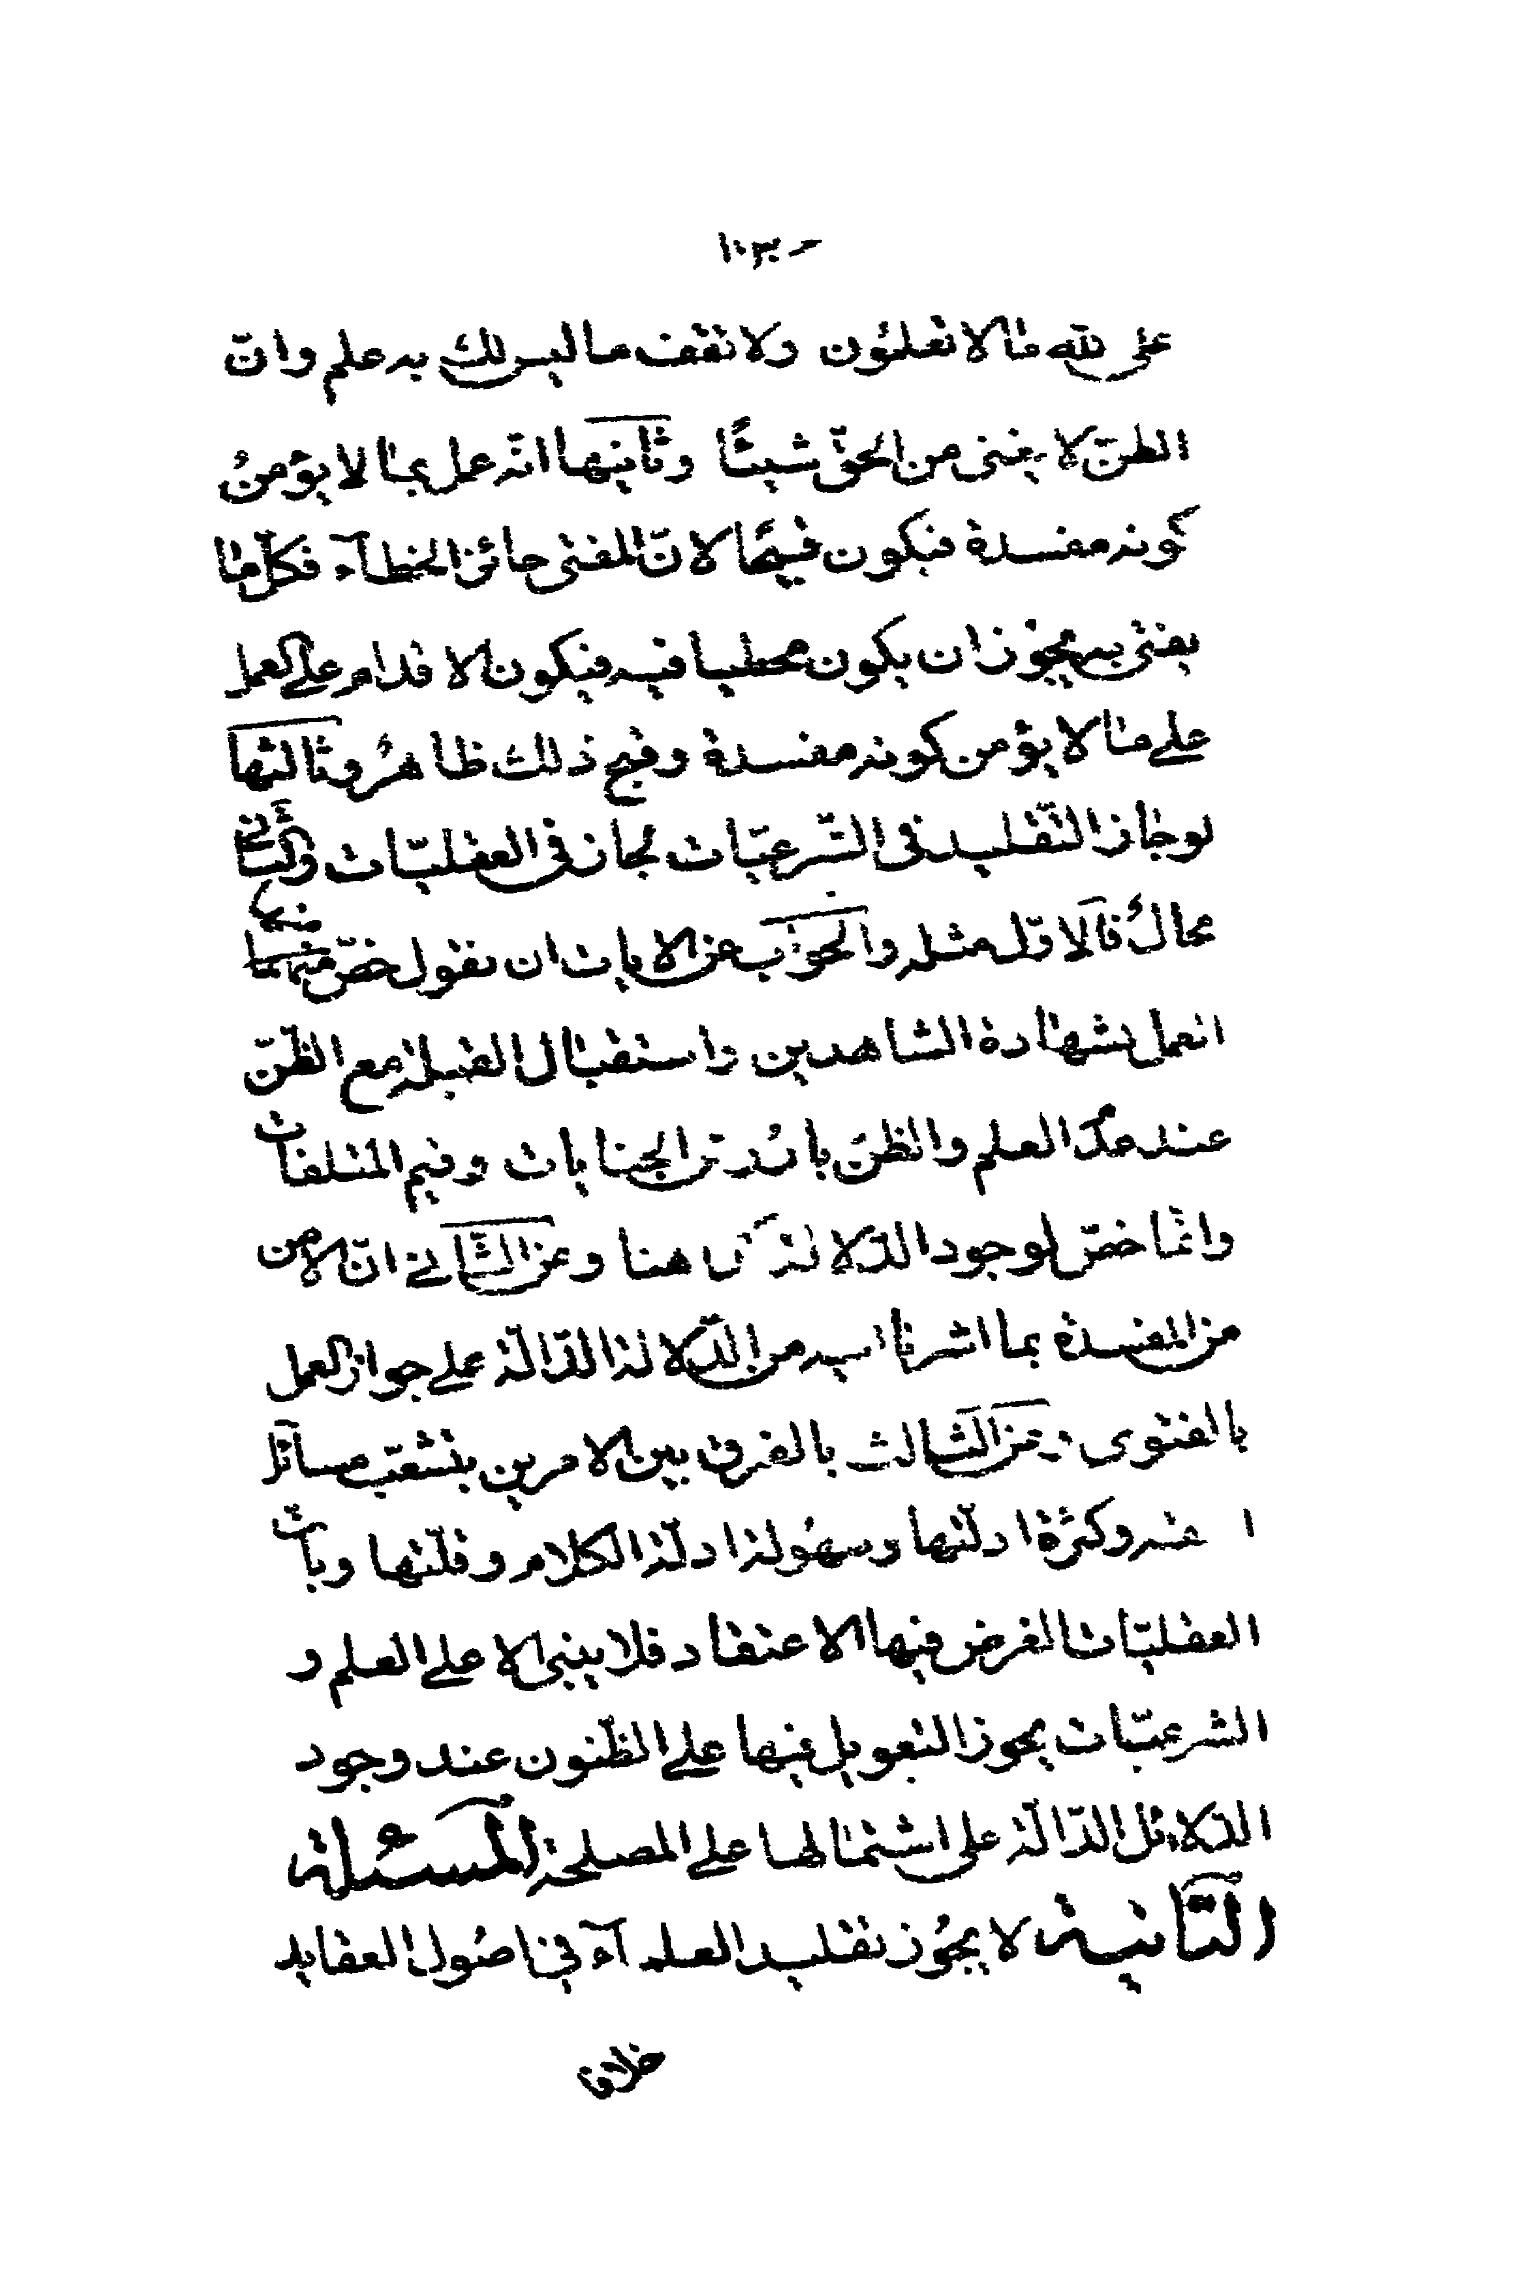 على الله ما لا تعلمون ولا تقف ما ليس لك به علم وانّ
الظنّ لا يغنى من الحقّ شيئًا وثانيها انّه عمل بما لا يؤمنُ
كونه مفسدة فيكون قبيحًا لانّ المفتى جائز الخطآء فكلّ ما
يفتى به يجوز ان يكون مخطيا فيه فيكون الاقدام على العمل
على ما لا يؤمن كونه مفسدة وقبح ذلك ظاهرٌ وثالثها
لو جاز التّقليد فى الشّرعيّات لجاز فى العقليّات والثّانى
محالٌ فالاوّل مثله والجواب عن الايات ان نقول خصّ منهما
العمل بشهادة الشاهدين واستقبال القبلة مع الظّنّ
عند عدم العلم والظنّ بارُش الجنايات وقيم المتلفات
وانّما خصّ لوجود الدّلالة هنا وعن الثّانى انّ الامن
من المفسدة بما اشرنا اليه من الدّلالة الدّالّة على جواز العمل
بالفتوى وعن الثالث بالفرق بين الامرين بتشعّب مسائل
ا وكثرة ادلّتها وسهُولة ادلّة الكلام وقلّتها وبانّ
العقليّات الغرض فيها الاعتقاد فلا يبنى الا على العلم و
الشرعيّات يجوز التعويل فيها على الظّنون عند وجود
الدّلائل الدّالّة على اشتمالها على المصلحة المسئلة
الثّانية لا يجُوز تقليد العلمآء فى اصُول العقايد
خلاف